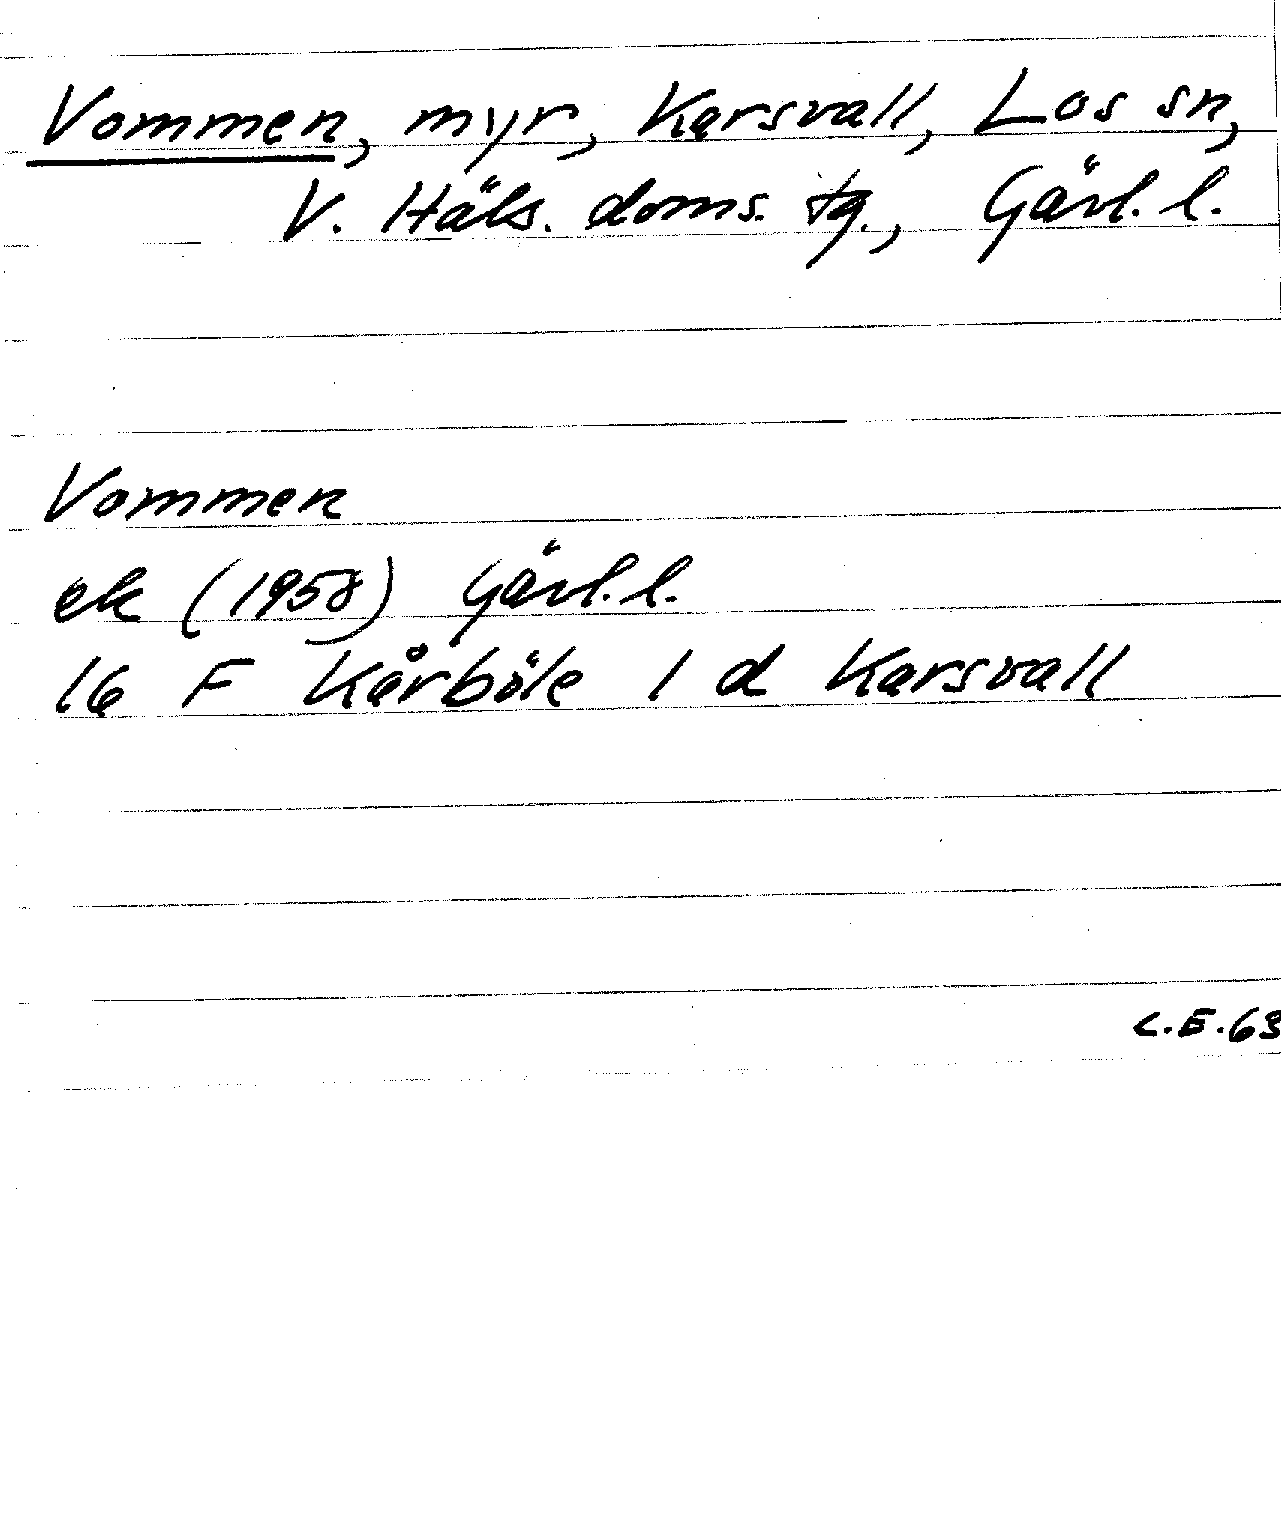 Vommen, myr, Karsvall, Los sn,
V. Häls. doms. tg., Gävl. l.
Vommen
ek (1958) Gävl. l.
16 F Kårböle 1 d Karsvall
C.E.63